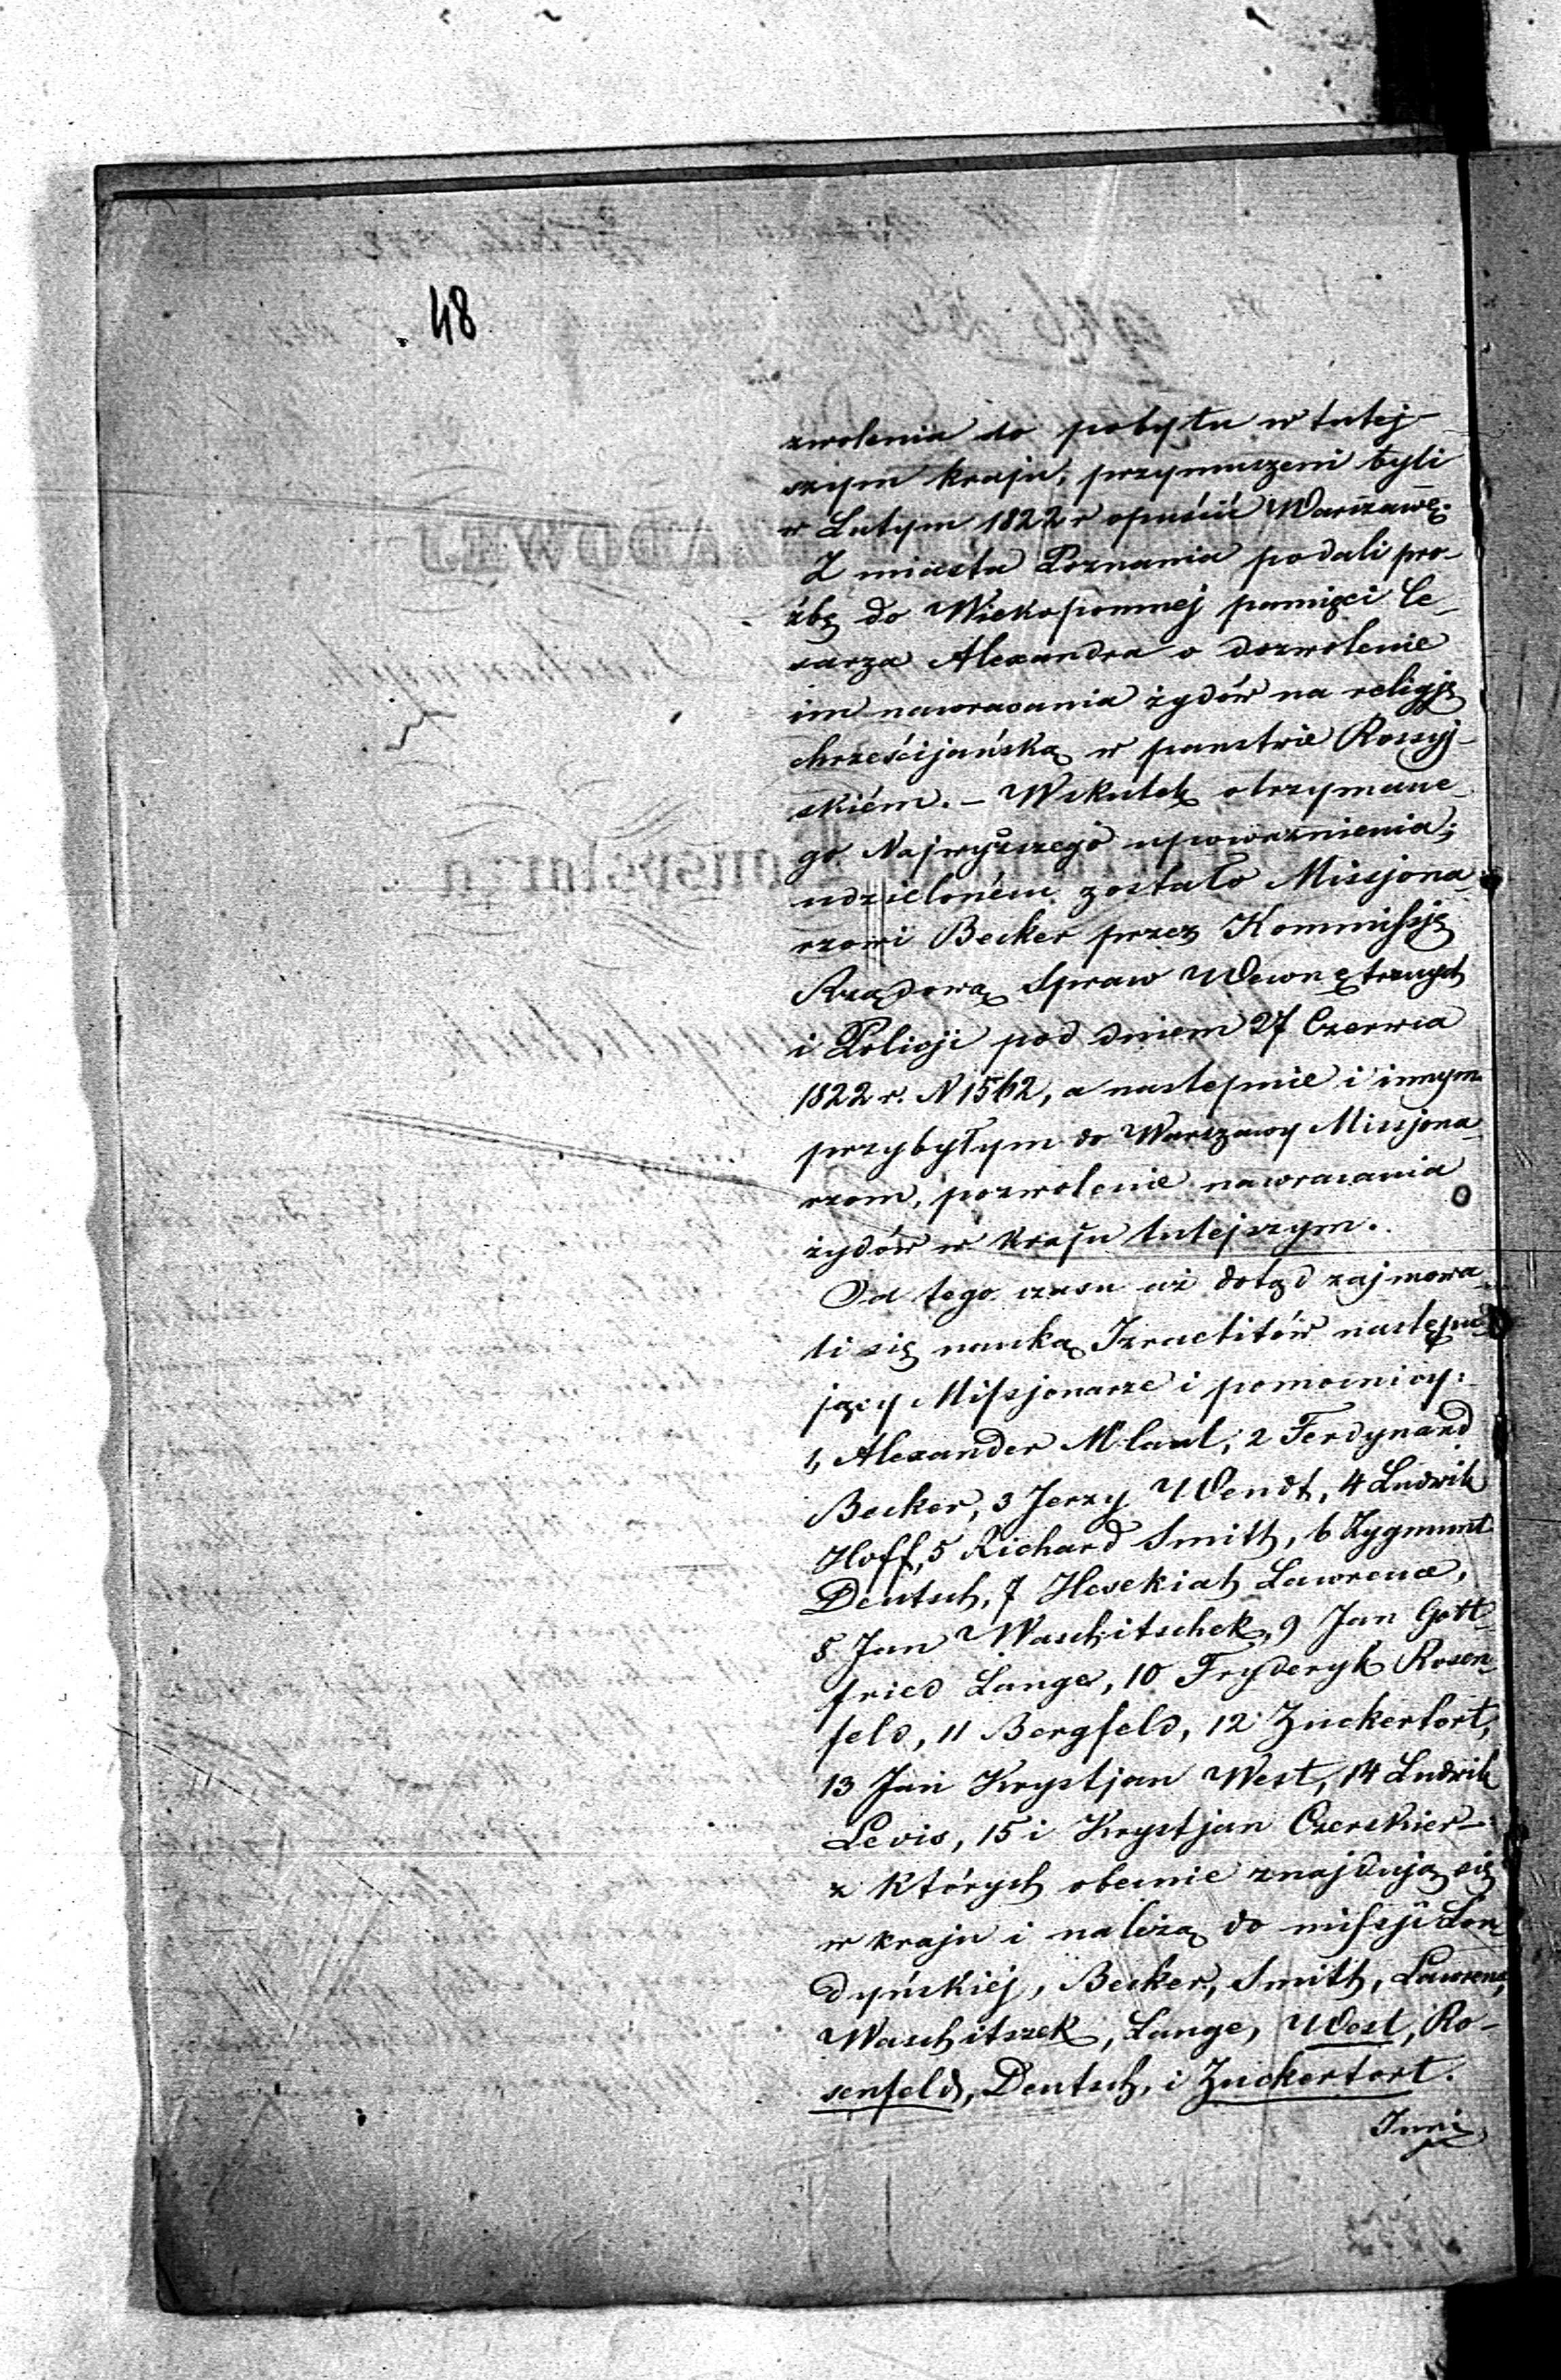 48
zwolenia do pobytu w tutej-
szym kraju, przymuszeni byli
w Lutym 1822 r opuścić Warszawę.
Z miasta Poznania podali pro-
źbę do Wiekopomnej pamięci Ce-
sarza Alexandra o dozwolenie
im nawracania żydów na religję
chrześcijańską w panstwie Rossyj-
skiém. – Wskutek otrzymane-
go Najwyższego upoważnienia;
udzieloném zostało Missjona-
rzowi Becker przez Kommissję
Rządową Spraw Wewnętrznych
i Policji pod dniem 27 Czerwca
1822 r. N 1562, a nastepnie i innym
przybyłym do Warszawy Missjona-
rzom, pozwolenie nawracania
żydów w kraju tutejszym.
Od tego czasu aż dotąd zajmowa-
li się nauką Izraelitów następu-
jący Missjonarze i pomocnicy:
1, Alexander M'Caul, 2 Ferdynand
Becker, 3 Jerzy Wendt, 4 Ludwik
Hoff, 5 Richard Smith, 6 Zygmunt
Deutsch, 7 Hesekiah Lawrence,
8 Jan Waschitschek, 9 Jan Gott-
fried Lange, 10 Fryderyk Rosen-
feld, 11 Bergfeld, 12 Zuckertort,
13 Jan Krystjan West, 14 Ludwik
Levis, 15 i Krystjan Czerskier –
z których obecnie znajdują się
w kraju i należą do missji Lon-
dyńskiej, Becker, Smith, Lawrence,
Waschitszek, Lange, West, Ro-
senfeld, Deutsch, i Zuckertort.
Inni